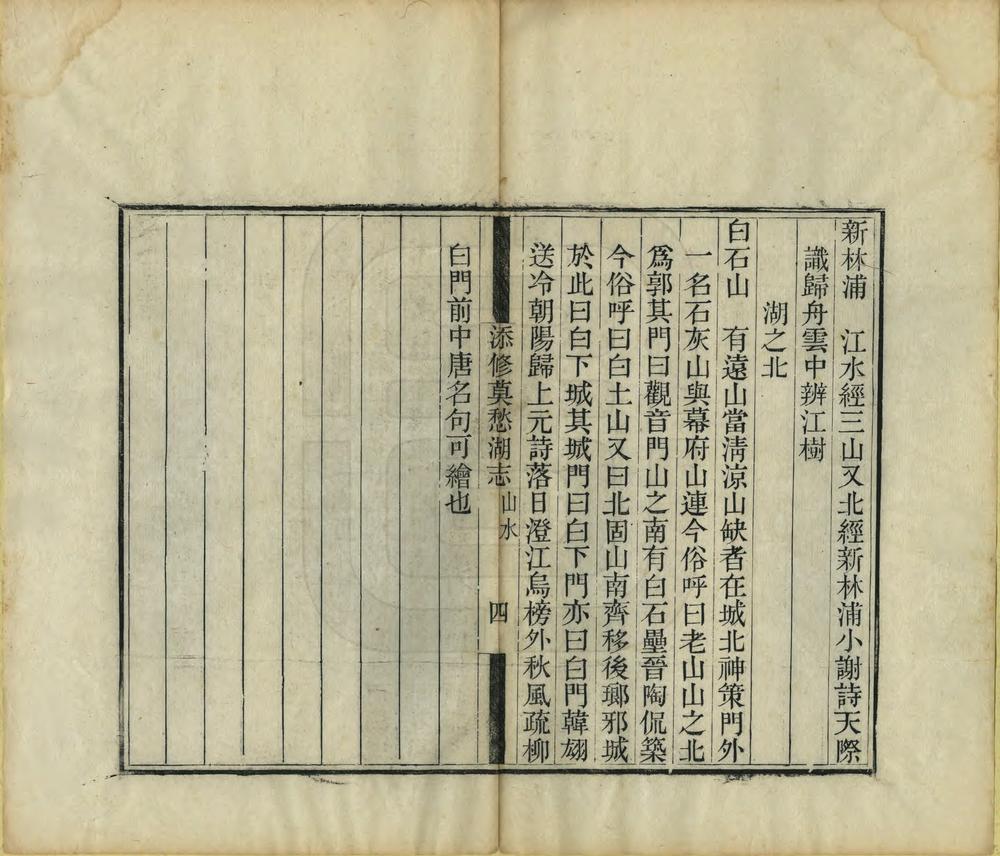 新林浦　江水經三山又北經新林浦小謝詩天際
識歸舟雲中辨江樹
湖之北
白石山　有遠山當清涼山缺者在城北神策門外
一名石灰山與幕府山連今俗呼曰老山山之北
爲郭其門曰觀音門山之南有白石壘晉陶侃築
今俗呼曰白土山又曰北固山南齊移後瑯邪城
於此曰白下城其城門曰白下門亦曰白門韓翃
送冷朝陽歸上元詩落日澄江烏榜外秋風疏柳
添修莫愁湖志　山水　四
白門前中唐名句可繪也